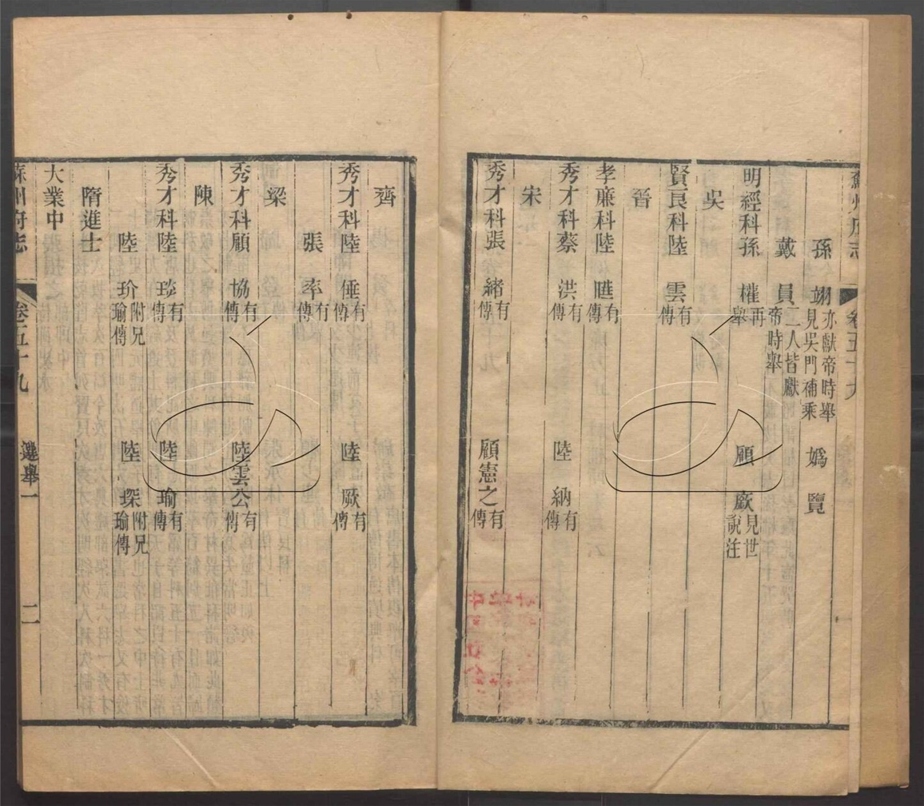 蘇州府志 卷五十九
孫 翊 亦獻帝時舉見吳門補乘 媯 覽
戴 員 二人皆獻帝時舉
明經科孫 權 再舉 顧 厥 見世說注
吳
賢良科陸 雲 有傳
晉
孝廉科陸 曄 有傳
秀才科蔡 洪 有傳 陸 納 有傳
宋
秀才科張 緒 有傳 顧憲之 有傳
齊
秀才科陸 倕 有傳 陸 厥 有傳
張 率 有傳
梁
秀才科顧 協 有傳 陸雲公 有傳
陳
秀才科陸 琰 有傳 陸 瑜 有傳
陸 玠 附兄瑜傳 陸 琛 附兄瑜傳
隋進士
大業中
蘇州府志 卷五十九 選舉一 二